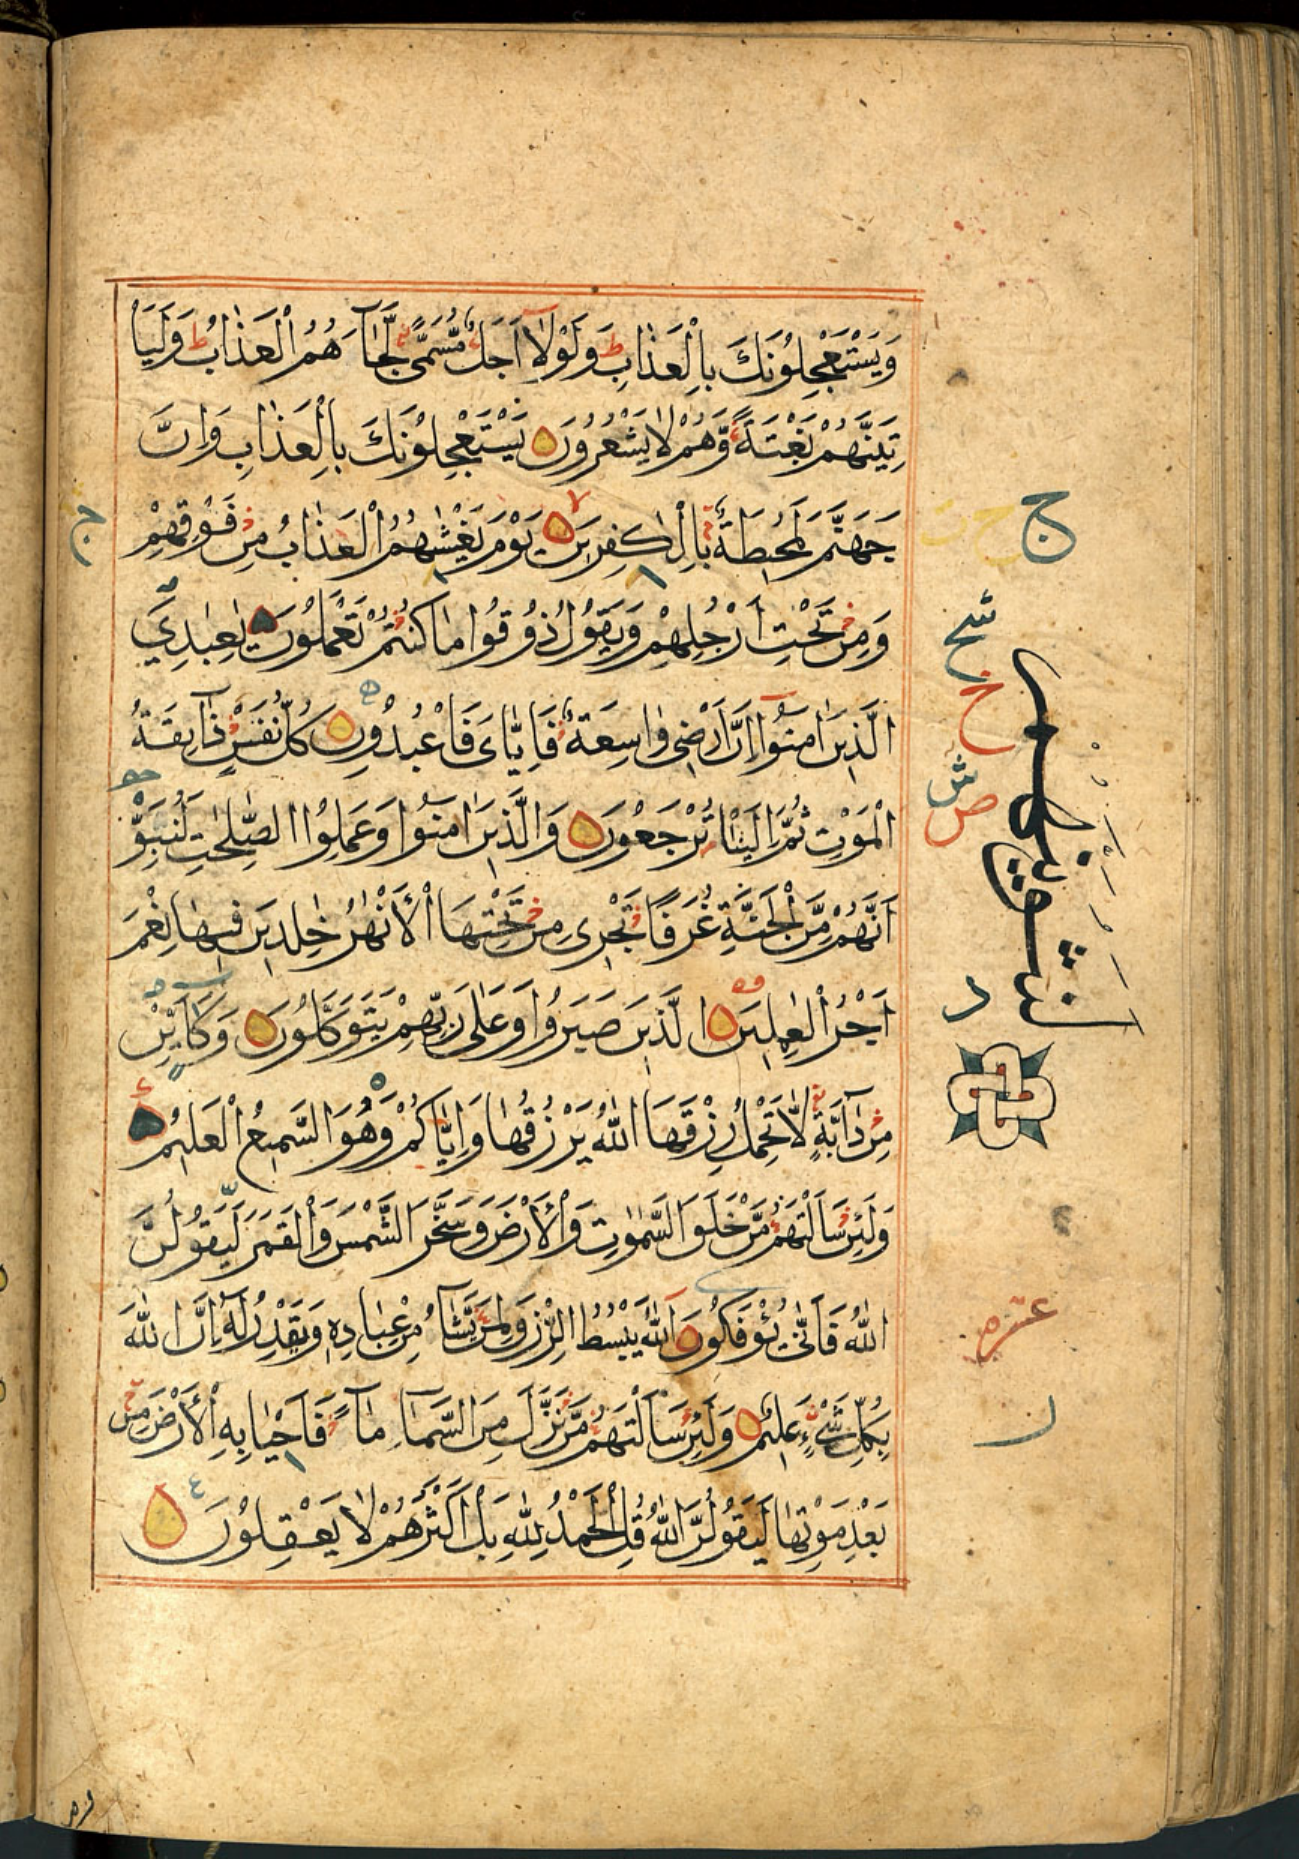 وَيَسْتَعْجِلُوْنَكَ بِالْعَذَابِ ط وَلَوْلَآ اَجَلٌ مُّسَمًّى لَّجَآءَهُمُ الْعَذَابُ ط وَلَيَاْ
تِيَنَّهُمْ بَغْتَةً وَّهُمْ لَا يَشْعُرُوْنَ يَسْتَعْجِلُوْنَكَ بِالْعَذَابِ وَاِنَّ
جَهَنَّمَ لَمُحِيْطَةٌ بِالْكٰفِرِيْنَ لا يَوْمَ يَغْشٰىهُمُ الْعَذَابُ مِنْ فَوْقِهِمْ
وَمِنْ تَحْتِ اَرْجُلِهِمْ وَيَقُوْلُ ذُوْقُوْا مَا كُنْتُمْ تَعْمَلُوْنَ يٰعِبَادِيَ
الَّذِيْنَ اٰمَنُوْٓا اِنَّ اَرْضِيْ وَاسِعَةٌ فَاِيَّايَ فَاعْبُدُوْنِ كُلُّ نَفْسٍ ذَآئِقَةُ
الْمَوْتِ ثُمَّ اِلَيْنَا تُرْجَعُوْنَ وَالَّذِيْنَ اٰمَنُوْا وَعَمِلُوا الصّٰلِحٰتِ لَنُبَوِّ
ئَنَّهُمْ مِّنَ الْجَنَّةِ غُرَفًا تَجْرِيْ مِنْ تَحْتِهَا الْاَنْهٰرُ خٰلِدِيْنَ فِيْهَا نِعْمَ
اَجْرُ الْعٰمِلِيْنَ الَّذِيْنَ صَبَرُوْا وَعَلٰى رَبِّهِمْ يَتَوَكَّلُوْنَ وَكَاَيِّنْ
مِنْ دَآبَّةٍ لَّا تَحْمِلُ رِزْقَهَا اللّٰهُ يَرْزُقُهَا وَاِيَّاكُمْ وَهُوَ السَّمِيْعُ الْعَلِيْمُ
وَلَئِنْ سَاَلْتَهُمْ مَّنْ خَلَقَ السَّمٰوٰتِ وَالْاَرْضَ وَسَخَّرَ الشَّمْسَ وَالْقَمَرَ لَيَقُوْلُنَّ
اللّٰهُ فَاَنّٰى يُؤْفَكُوْنَ اَللّٰهُ يَبْسُطُ الرِّزْقَ لِمَنْ يَّشَآءُ مِنْ عِبَادِهٖ وَيَقْدِرُ لَهٗ اِنَّ اللّٰهَ
بِكُلِّ شَيْءٍ عَلِيْمٌ وَلَئِنْ سَاَلْتَهُمْ مَّنْ نَّزَّلَ مِنَ السَّمَآءِ مَآءً فَاَحْيَا بِهِ الْاَرْضَ مِنْ
بَعْدِ مَوْتِهَا لَيَقُوْلُنَّ اللّٰهُ قُلِ الْحَمْدُ لِلّٰهِ بَلْ اَكْثَرُهُمْ لَا يَعْقِلُوْنَ
ج
ج
خ
د